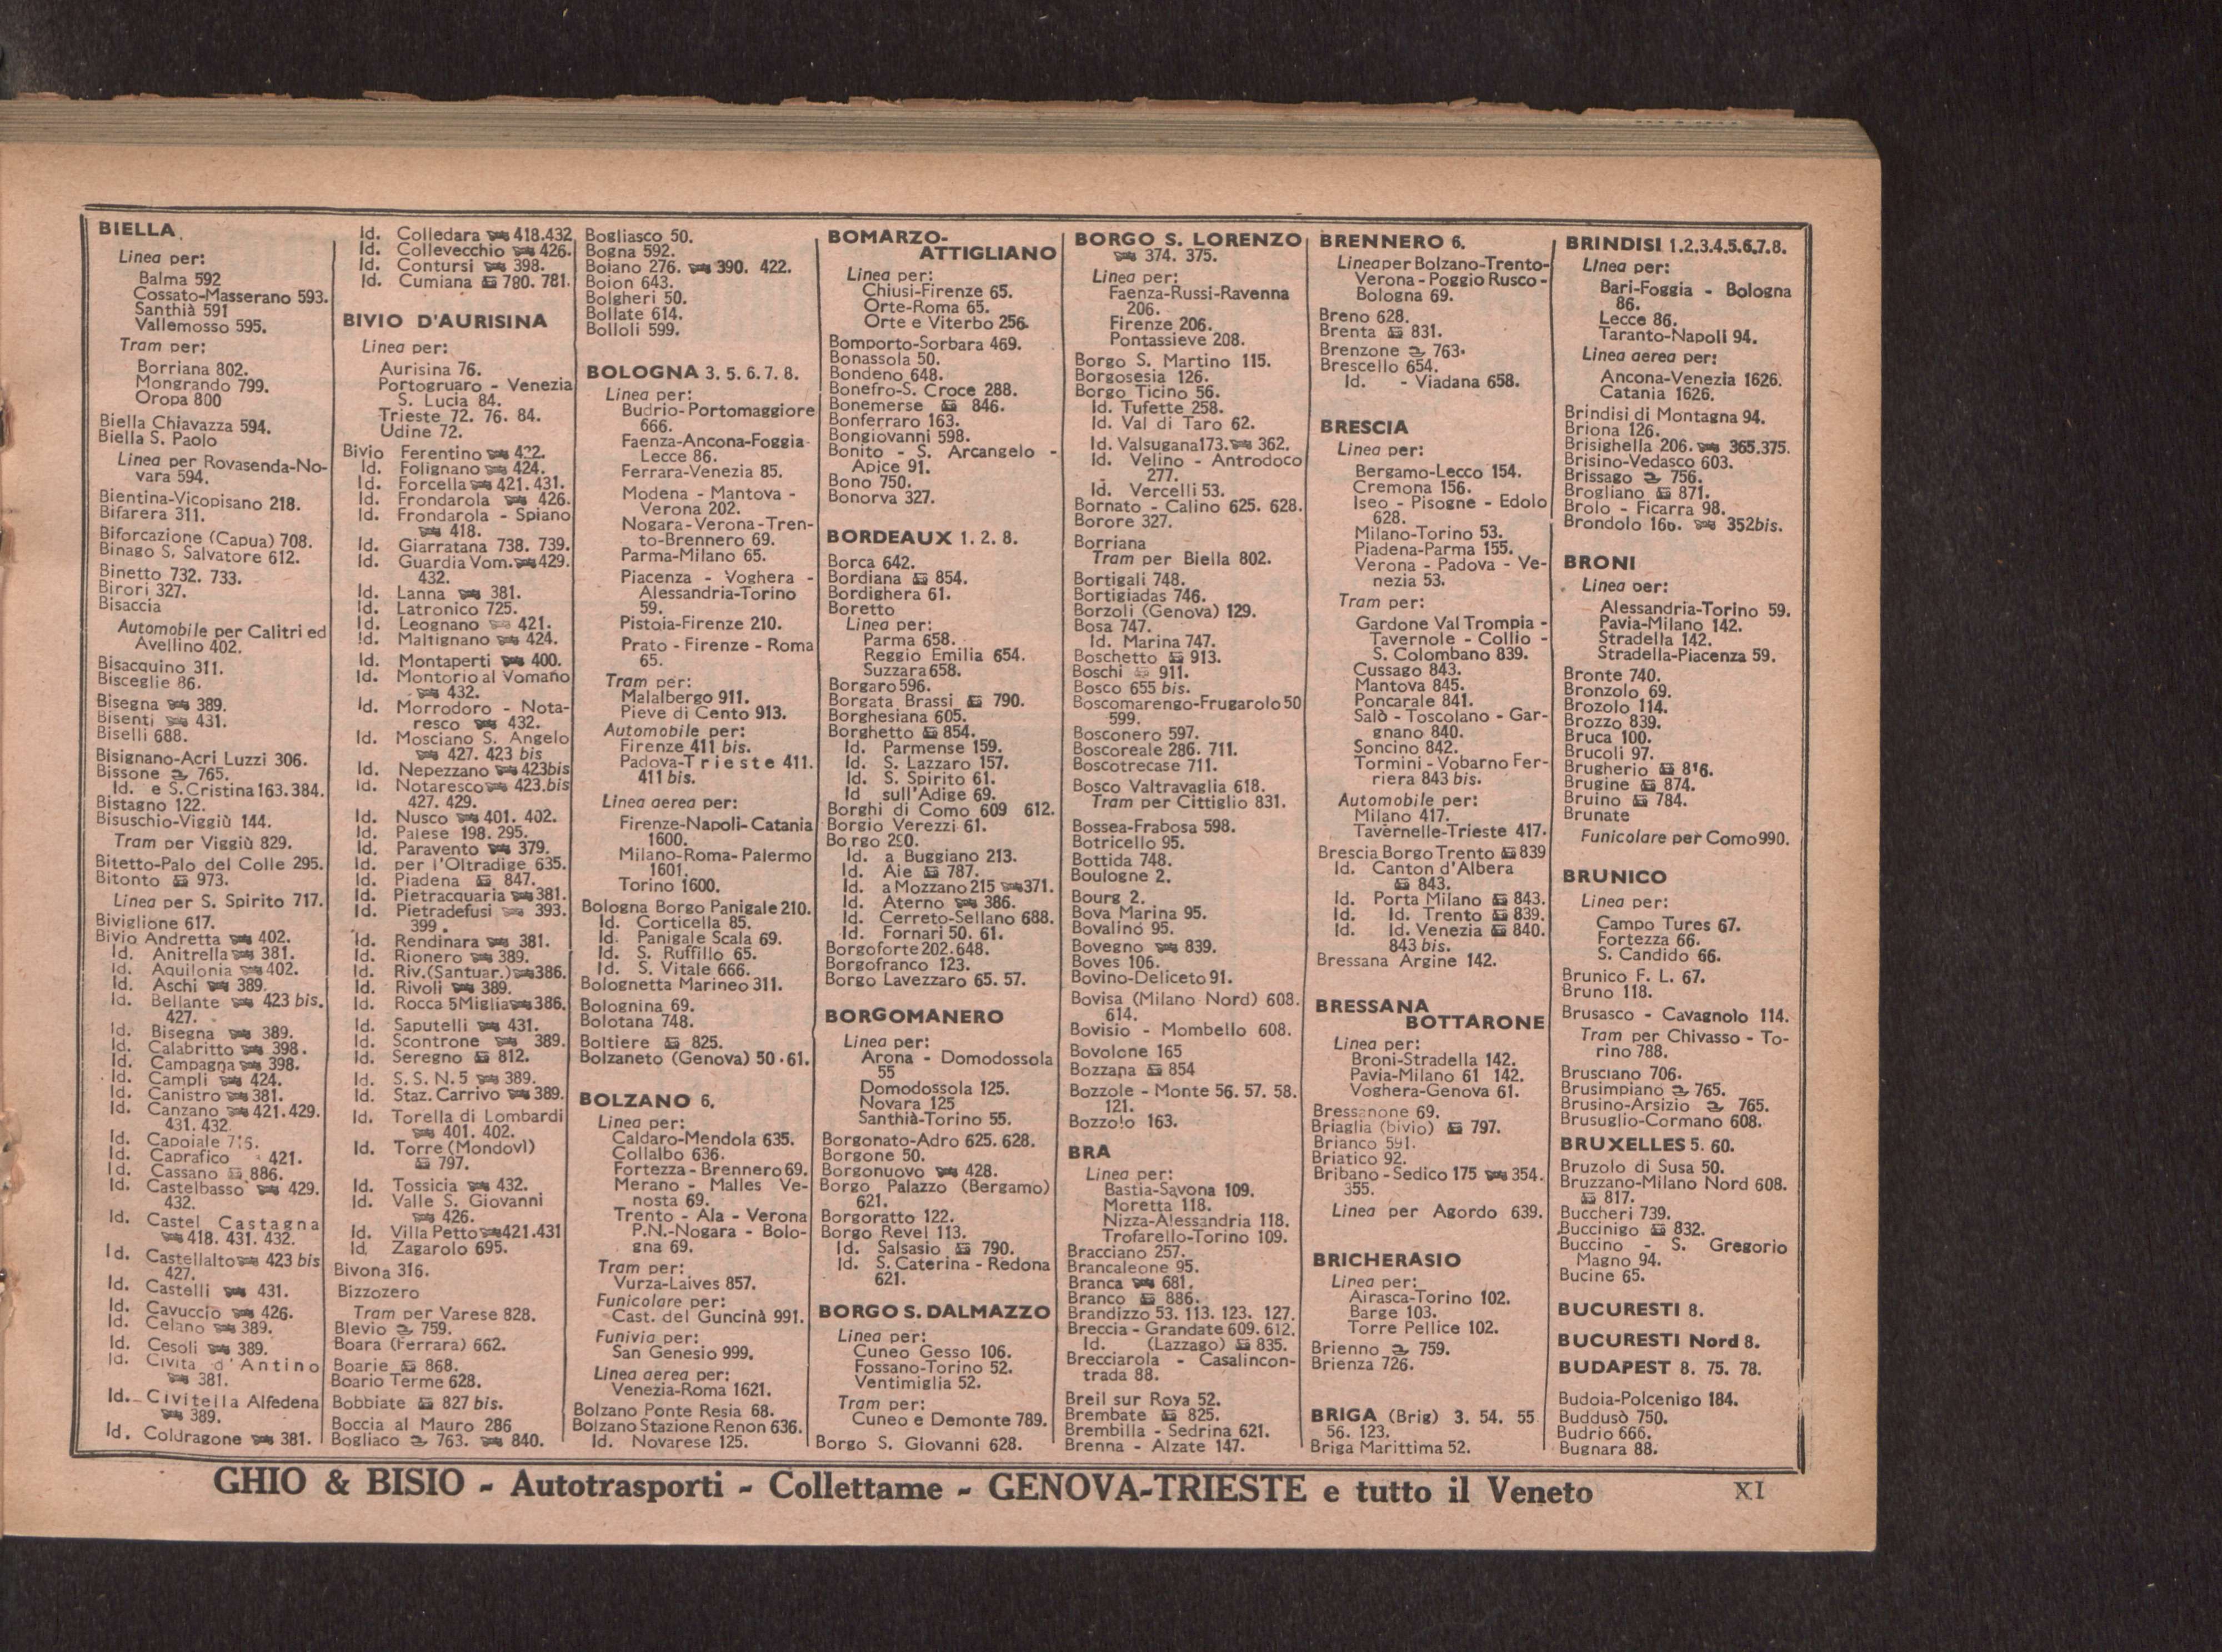 BIELLA
Linea per:
Balma 592
Cossato-Masserano 593.
Santhià 591
Vallemosso 595.
Tram per:
Borriana 802.
Mongrando 799.
Oropa 800
Biella Chiavazza 594.
Biella S. Paolo
Linea per Rovasenda-No-
vara 594.
Bientina-Vicopisano 218.
Bifarera 311.
Biforcazione (Capua) 708.
Binago S. Salvatore 612.
Binetto 732. 733.
Birori 327.
Bisaccia
Automobile per Calitri ed
Avellino 402.
Bisacquino 311.
Bisceglie 86.
Bisegna 389.
Bisenti 431.
Biselli 688.
Bisignano-Acri Luzzi 306.
Bissone 765.
Id. e S. Cristina 163. 384.
Bistagno 122.
Bisuschio-Viggiù 144.
Tram per Viggiù 829.
Bitetto-Palo del Colle 295.
Bitonto 973.
Linea per S. Spirito 717.
Biviglione 617.
Bivio Andretta 402.
Id. Anitrella 381.
Id. Aquilonia 402.
Id. Aschi 389.
Id. Bellante 423 bis.
427.
Id. Bisegna 389.
Id. Calabritto 398.
Id. Campagna 398.
Id. Campli 424.
Id. Canistro 381.
Id. Canzano 421. 429.
431. 432.
Id. Capoiale
Id. Caprafico 421.
Id. Cassano 886.
Id. Castelbasso 429.
432.
Id. Castel Castagna
418. 431. 432.
Id. Castellalto 423 bis
427.
Id. Castelli 431.
Id. Cavuccio 426.
Id. Celano 389.
Id. Cesoli 389.
Id. Civita d'Antino
381.
Id. Civitella Alfedena
389.
Id. Coldragone 381.
Id. Colledara 418. 432
Id. Collevecchio 426.
Id. Contursi 398.
Id. Cumiana 780. 781.
BIVIO D'AURISINA
Linea per:
Aurisina 76.
Portogruaro - Venezia
S. Lucia 84.
Trieste 72. 76. 84.
Udine 72.
Bivio Ferentino 422.
Id. Folignano 424.
Id. Forcella 421. 431.
Id. Frondarola 426.
Id. Frondarola - Spiano
418.
Id. Giarratana 738. 739.
Id. Guardia Vom. 429.
432.
Id. Lanna 381.
Id. Latronico 725.
Id. Leognano 421.
Id. Maltignano 424.
Id. Montaperti 400.
Id. Montorio al Vomano
432.
Id. Morrodoro - Nota-
resco 432.
Id. Mosciano S. Angelo
427. 423 bis
Id. Nepezzano 423bis
Id. Notaresco 423.bis
427. 429.
Id. Nusco 401. 402.
Id. Palese 198. 295.
Id. Paravento 379.
Id. per l'Oltradige 635.
Id. Piadena 847.
Id. Pietracquaria 381.
Id. Pietradefusi 393.
399.
Id. Rendinara 381.
Id. Rionero 389.
Id. Riv. (Santuar.) 386.
Id. Rivoli 389.
Id. Rocca 5Miglia 386.
Id. Saputelli 431.
Id. Scontrone 389.
Id. Seregno 812.
Id. S. S. N. 5 389.
Id. Staz. Carrivo 389.
Id. Torella di Lombardi
401. 402.
Id. Torre (Mondovì)
797.
Id. Tossicia 432.
Id. Valle S. Giovanni
426.
Id. Villa Petto 421.431
Id. Zagarolo 695.
Bivona 316.
Bizzozero
Tram per Varese 828.
Blevio 759.
Boara (Ferrara) 662.
Boarie 868.
Boario Terme 628.
Bobbiate 827 bis.
Boccia al Mauro 286
Bogliaco 763. 840.
Bogliasco 50.
Bogna 592.
Boiano 276. 390. 422.
Boion 643.
Bolgheri 50.
Bollate 614.
Bolloli 599.
BOLOGNA 3. 5. 6. 7. 8.
Linea per:
Budrio-Portomaggiore
666.
Faenza-Ancona-Foggia-
Lecce 86.
Ferrara-Venezia 85.
Modena - Mantova -
Verona 202.
Nogara-Verona-Tren-
to-Brennero 69.
Parma-Milano 65.
Piacenza - Voghera -
Alessandria-Torino
59.
Pistoia-Firenze 210.
Prato - Firenze - Roma
65.
Tram per:
Malalbergo 911.
Pieve di Cento 913.
Automobile per:
Firenze 411 bis.
Padova-Trieste 411.
411 bis.
Linea aerea per:
Firenze-Napoli-Catania
1600.
Milano-Roma-Palermo
1601.
Torino 1600.
Bologna Borgo Panigale 210.
Id. Corticella 85.
Id. Panigale Scala 69.
Id. S. Ruffillo 65.
Id. S. Vitale 666.
Bolognetta Marineo 311.
Bolognina 69.
Bolotana 748.
Boltiere 825.
Bolzaneto (Genova) 50.61.
BOLZANO 6.
Linea per:
Caldaro-Mendola 635.
Collalbo 636.
Fortezza - Brennero 69.
Merano - Malles Ve-
nosta 69.
Trento - Ala - Verona
P.N.-Nogara - Bolo-
gna 69.
Tram per:
Vurza-Laives 857.
Funicolare per:
Cast. del Guncinà 991.
Funivia per:
San Genesio 999.
Linea aerea per:
Venezia-Roma 1621.
Bolzano Ponte Resia 68.
Bolzano Stazione Renon 636.
Id. Novarese 125.
BOMARZO-
ATTIGLIANO
Linea per:
Chiusi-Firenze 65.
Orte-Roma 65.
Orte e Viterbo 256.
Bomporto-Sorbara 469.
Bonassola 50.
Bondeno 648.
Bonefro-S. Croce 288.
Bonemerse 846.
Bonferraro 163.
Bongiovanni 598.
Bonito - S. Arcangelo -
Apice 91.
Bono 750.
Bonorva 327.
BORDEAUX 1. 2. 8.
Borca 642.
Bordiana 854.
Bordighera 61.
Boretto
Linea per:
Parma 658.
Reggio Emilia 654.
Suzzara 658.
Borgaro 596.
Borgata Brassi 790.
Borghesiana 605.
Borghetto 854.
Id. Parmense 159.
Id. S. Lazzaro 157.
Id. S. Spirito 61.
Id sull'Adige 69.
Borghi di Como 609 612.
Borgio Verezzi 61.
Borgo 290.
Id. a Buggiano 213.
Id. Aie 787.
Id. a Mozzano 215 371.
Id. Aterno 386.
Id. Cerreto-Sellano 688.
Id. Fornari 50. 61.
Borgoforte 202. 648.
Borgofranco 123.
Borgo Lavezzaro 65. 57.
BORGOMANERO
Linea per:
Arona - Domodossola
55
Domodossola 125.
Novara 125
Santhià-Torino 55.
Borgonato-Adro 625. 628.
Borgone 50.
Borgonuovo 428.
Borgo Palazzo (Bergamo)
621.
Borgoratto 122.
Borgo Revel 113.
Id. Salsasio 790.
Id. S. Caterina - Redona
621.
BORGO S. DALMAZZO
Linea per:
Cuneo Gesso 106.
Fossano-Torino 52.
Ventimiglia 52.
Tram per:
Cuneo e Demonte 789.
Borgo S. Giovanni 628.
BORGO S. LORENZO
374. 375.
Linea per:
Faenza-Russi-Ravenna
206.
Firenze 206.
Pontassieve 208.
Borgo S. Martino 115.
Borgosesia 126.
Borgo Ticino 56.
Id. Tufette 258.
Id. Val di Taro 62.
Id. Valsugana 173. 362.
Id. Velino - Antrodoco
277.
Id. Vercelli 53.
Bornato - Calino 625. 628.
Borore 327.
Borriana
Tram per Biella 802.
Bortigali 748.
Bortigiadas 746.
Borzoli (Genova) 129.
Bosa 747.
Id. Marina 747.
Boschetto 913.
Boschi 911.
Bosco 655 bis.
Boscomarengo-Frugarolo 50
599.
Bosconero 597.
Boscoreale 286. 711.
Boscotrecase 711.
Bosco Valtravaglia 618.
Tram per Cittiglio 831.
Bossea-Frabosa 598.
Botricello 95.
Bottida 748.
Boulogne 2.
Bourg 2.
Bova Marina 95.
Bovalino 95.
Bovegno 839.
Boves 106.
Bovino-Deliceto 91.
Bovisa (Milano Nord) 608.
614.
Bovisio - Mombello 608.
Bovolone 165
Bozzana 854
Bozzole - Monte 56. 57. 58.
121.
Bozzolo 163.
BRA
Linea per:
Bastia-Savona 109.
Moretta 118.
Nizza-Alessandria 118.
Trofarello-Torino 109.
Bracciano 257.
Brancaleone 95.
Branca 681.
Branco 886.
Brandizzo 53. 113. 123. 127.
Breccia - Grandate 609. 612.
Id. (Lazzago) 835.
Brecciarola - Casalincon-
trada 88.
Breil sur Roya 52.
Brembate 825.
Brembilla - Sedrina 621.
Brenna - Alzate 147.
BRENNERO 6.
Linea per Bolzano-Trento-
Verona - Poggio Rusco -
Bologna 69.
Breno 628.
Brenta 831.
Brenzone 763.
Brescello 654.
Id. - Viadana 658.
BRESCIA
Linea per:
Bergamo-Lecco 154.
Cremona 156.
Iseo - Pisogne - Edolo
628.
Milano-Torino 53.
Piadena-Parma 155.
Verona - Padova - Ve-
nezia 53.
Tram per:
Gardone Val Trompia -
Tavernole - Collio -
S. Colombano 839.
Cussago 843.
Mantova 845.
Poncarale 841.
Salò - Toscolano - Gar-
gnano 840.
Soncino 842.
Tormini - Vobarno Fer-
riera 843 bis.
Automobile per:
Milano 417.
Tavernelle-Trieste 417.
Brescia Borgo Trento 839
Id. Canton d'Albera
843.
Id. Porta Milano 843.
Id. Id. Trento 839.
Id. Id. Venezia 840.
843 bis.
Bressana Argine 142.
BRESSANA
BOTTARONE
Linea per:
Broni-Stradella 142.
Pavia-Milano 61 142.
Voghera-Genova 61.
Bressanone 69.
Briaglia (bivio) 797.
Brianco 591.
Briatico 92.
Bribano - Sedico 175 354.
355.
Linea per Agordo 639.
BRICHERASIO
Linea per:
Airasca-Torino 102.
Barge 103.
Torre Pellice 102.
Brienno 759.
Brienza 726.
BRIGA (Brig) 3. 54. 55
56. 123.
Briga Marittima 52.
BRINDISI 1.2.3.4.5.6.7.8.
Linea per:
Bari-Foggia - Bologna
86.
Lecce 86.
Taranto-Napoli 94.
Linea aerea per:
Ancona-Venezia 1626.
Catania 1626.
Brindisi di Montagna 94.
Briona 126.
Brisighella 206. 365.375.
Brisino-Vedasco 603.
Brissago 756.
Brogliano 871.
Brolo - Ficarra 98.
Brondolo 160. 352bis.
BRONI
Linea per:
Alessandria-Torino 59.
Pavia-Milano 142.
Stradella 142.
Stradella-Piacenza 59.
Bronte 740.
Bronzolo 69.
Brozolo 114.
Brozzo 839.
Bruca 100.
Brucoli 97.
Brugherio 816.
Brugine 874.
Bruino 784.
Brunate
Funicolare per Como 990.
BRUNICO
Linea per:
Campo Tures 67.
Fortezza 66.
S. Candido 66.
Brunico F. L. 67.
Bruno 118.
Brusasco - Cavagnolo 114.
Tram per Chivasso - To-
rino 788.
Brusciano 706.
Brusimpiano 765.
Brusino-Arsizio 765.
Brusuglio-Cormano 608.
BRUXELLES 5. 60.
Bruzolo di Susa 50.
Bruzzano-Milano Nord 608.
817.
Buccheri 739.
Buccinigo 832.
Buccino - S. Gregorio
Magno 94.
Bucine 65.
BUCURESTI 8.
BUCURESTI Nord 8.
BUDAPEST 8. 75. 78.
Budoia-Polcenigo 184.
Buddusò 750.
Budrio 666.
Bugnara 88.
GHIO & BISIO - Autotrasporti - Collettame - GENOVA-TRIESTE e tutto il Veneto
XI